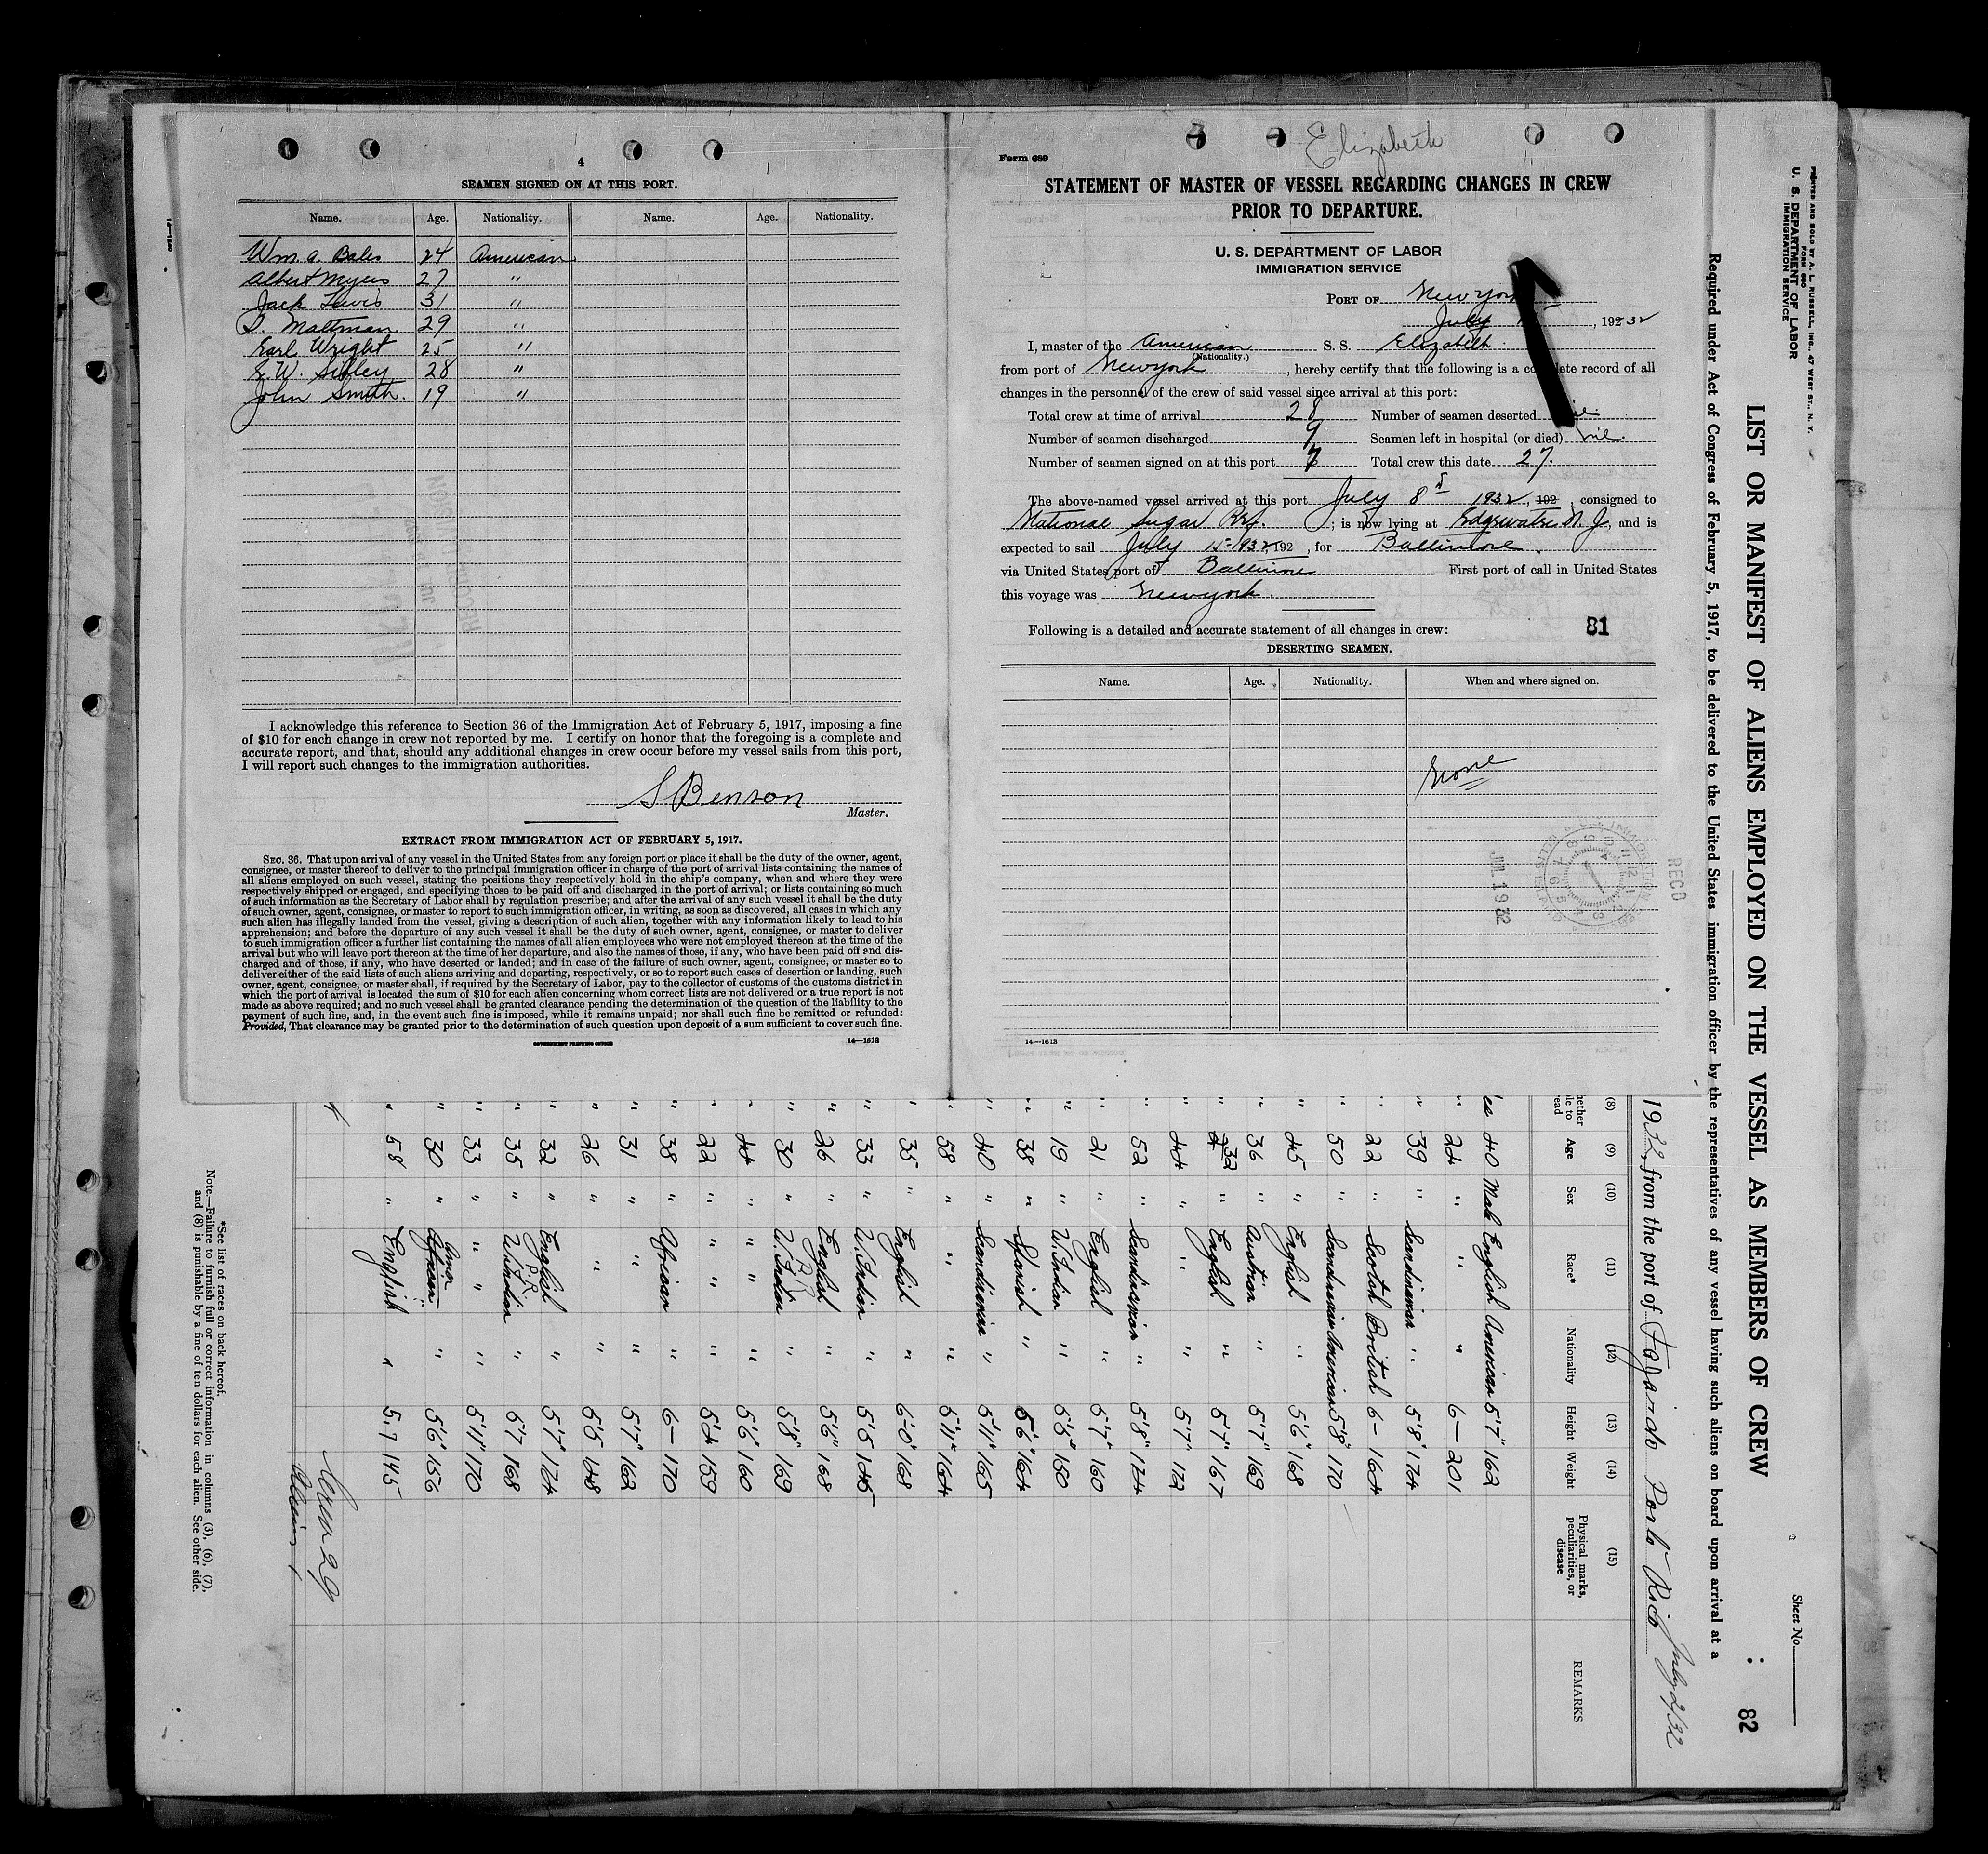 4
SEAMEN SIGNED ON AT THIS PORT.
Name. Age. Nationality. Name. Age. Nationality.
Wm. A. Bales 24 American
Albert Myers 27 "
Jack Lewis 31 "
D. Maltman 29 "
Earl Wright 25 "
E. W. Sibley 28 "
John Smith. 19 "
I acknowledge this reference to Section 36 of the Immigration Act of February 5, 1917, imposing a fine
of $10 for each change in crew not reported by me. I certify on honor that the foregoing is a complete and
accurate report, and that, should any additional changes in crew occur before my vessel sails from this port,
I will report such changes to the immigration authorities.
S Benson
Master.
EXTRACT FROM IMMIGRATION ACT OF FEBRUARY 5, 1917.
SEC. 36. That upon arrival of any vessel in the United States from any foreign port or place it shall be the duty of the owner, agent,
consignee, or master thereof to deliver to the principal immigration officer in charge of the port of arrival lists containing the names of
all aliens employed on such vessel, stating the positions they respectively hold in the ship's company, when and where they were
respectively shipped or engaged, and specifying those to be paid off and discharged in the port of arrival; or lists containing so much
of such information as the Secretary of Labor shall by regulation prescribe; and after the arrival of any such vessel it shall be the duty
of such owner, agent, consignee, or master to report to such immigration officer, in writing, as soon as discovered, all cases in which any
such alien has illegally landed from the vessel, giving a description of such alien, together with any information likely to lead to his
apprehension; and before the departure of any such vessel it shall be the duty of such owner, agent, consignee, or master to deliver
to such immigration officer a further list containing the names of all alien employees who were not employed thereon at the time of the
arrival but who will leave port thereon at the time of her departure, and also the names of those, if any, who have been paid off and dis-
charged and of those, if any, who have deserted or landed; and in case of the failure of such owner, agent, consignee, or master so to
deliver either of the said lists of such aliens arriving and departing, respectively, or so to report such cases of desertion or landing, such
owner, agent, consignee, or master shall, if required by the Secretary of Labor, pay to the collector of customs of the customs district in
which the port of arrival is located the sum of $10 for each alien concerning whom correct lists are not delivered or a true report is not
made as above required; and no such vessel shall be granted clearance pending the determination of the question of the liability to the
payment of such fine, and, in the event such fine is imposed, while it remains unpaid; nor shall such fine be remitted or refunded:
Provided, That clearance may be granted prior to the determination of such question upon deposit of a sum sufficient to cover such fine.
GOVERNMENT PRINTING OFFICE 14—1613
Elizabeth
Form 689
STATEMENT OF MASTER OF VESSEL REGARDING CHANGES IN CREW
PRIOR TO DEPARTURE.
U. S. DEPARTMENT OF LABOR
IMMIGRATION SERVICE
PORT OF New York
July , 1932
I, master of the American S. S. Elizabeth.
(Nationality.)
from port of New york , hereby certify that the following is a complete record of all
changes in the personnel of the crew of said vessel since arrival at this port:
Total crew at time of arrival 28 Number of seamen deserted
Number of seamen discharged 9 Seamen left in hospital (or died) nil.
Number of seamen signed on at this port 7 Total crew this date 27.
The above-named vessel arrived at this port July 8 1932, 192 , consigned to
National Sugar Rfy. ; is now lying at Edgewater N. J, and is
expected to sail July 15-1932, 192 , for Baltimore.
via United States port of Baltimore First port of call in United States
this voyage was New york.
Following is a detailed and accurate statement of all changes in crew: 81
DESERTING SEAMEN.
Name. Age. Nationality. When and where signed on.
None
RECD
JUL 19 32
14—1613
PRINTED AND SOLD BY A. L. RUSSELL, INC., 47 WEST ST., N. Y.
FORM 680
U. S. DEPARTMENT OF LABOR
IMMIGRATION SERVICE
Sheet No.
LIST OR MANIFEST OF ALIENS EMPLOYED ON THE VESSEL AS MEMBERS OF CREW : 82
Required under Act of Congress of February 5, 1917, to be delivered to the United States immigration officer by the representatives of any vessel having such aliens on board upon arrival at a
1932, from the port of Fajardo Porto Rico July 2/32
(8) (9) (10) (11) (12) (13) (14) (15)
Age Sex Race* Nationality Height Weight Physical marks, peculiarities, or disease REMARKS
40 Male English American 5'7" 162
" 24 " " " 6— 201
39 " Scandinavian " 5'8" 174
" 22 " Scotch British 6— 164
" 50 " Scandinavian American 5'8" 170
" 45 " English " 5'6" 168
" 36 " Austrian " 5'7" 169
" 32 " English " 5'7" 167
" 44 " " " 5'7" 172
" 52 " Scandinavian " 5'8" 174
" 21 " English " 5'7" 160
" 19 " W. Indian " 5'8" 150
" 38 " Spanish " 5'6" 164
" 40 " Scandinavian " 5'11" 165
" 58 " " " 5'11" 164
" 35 " English " 6-0" 168
" 33 " W. Indian " 5'5" 145
" 26 " English " 5'6" 168
" 30 " W. Indian " 5'8" 169
" 44 " " " 5'6" 160
" 22 " " " 5'4" 159
" 38 " African " 6— 170
" 31 " " " 5'7" 162
" 26 " " " 5'5" 148
" 32 " English " 5'7" 174
" 35 " W. Indian " 5'7 168
" 33 " " " 5'11" 170
" 30 " African " 5'6" 156
" 58 " English " 5.7 145
Crew 29
Alien 1
*See list of races on back hereof.
Note.—Failure to furnish full or correct information in columns (3), (6), (7),
and (8) is punishable by a fine of ten dollars for each alien. See other side.